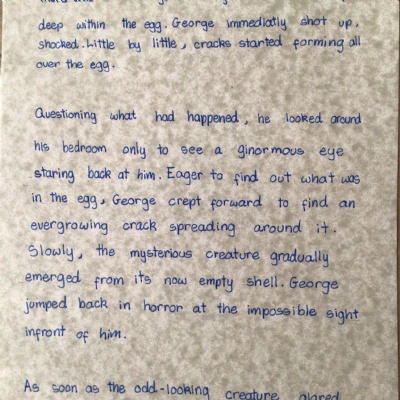 deep within the egg. George immediatly shot up,
shocked. Little by little, cracks started forming all
over the egg.
Questioning what had happened, he looked around
his bedroom only to see a ginormous eye
staring back at him. Eager to find out what was
in the egg, George crept forward to find an
evergrowing crack spreading around it.
Slowly, the mysterious creature gradually
emerged from its now empty shell. George
jumped back in horror at the impossible sight
infront of him.
As soon as the odd-looking creature glared